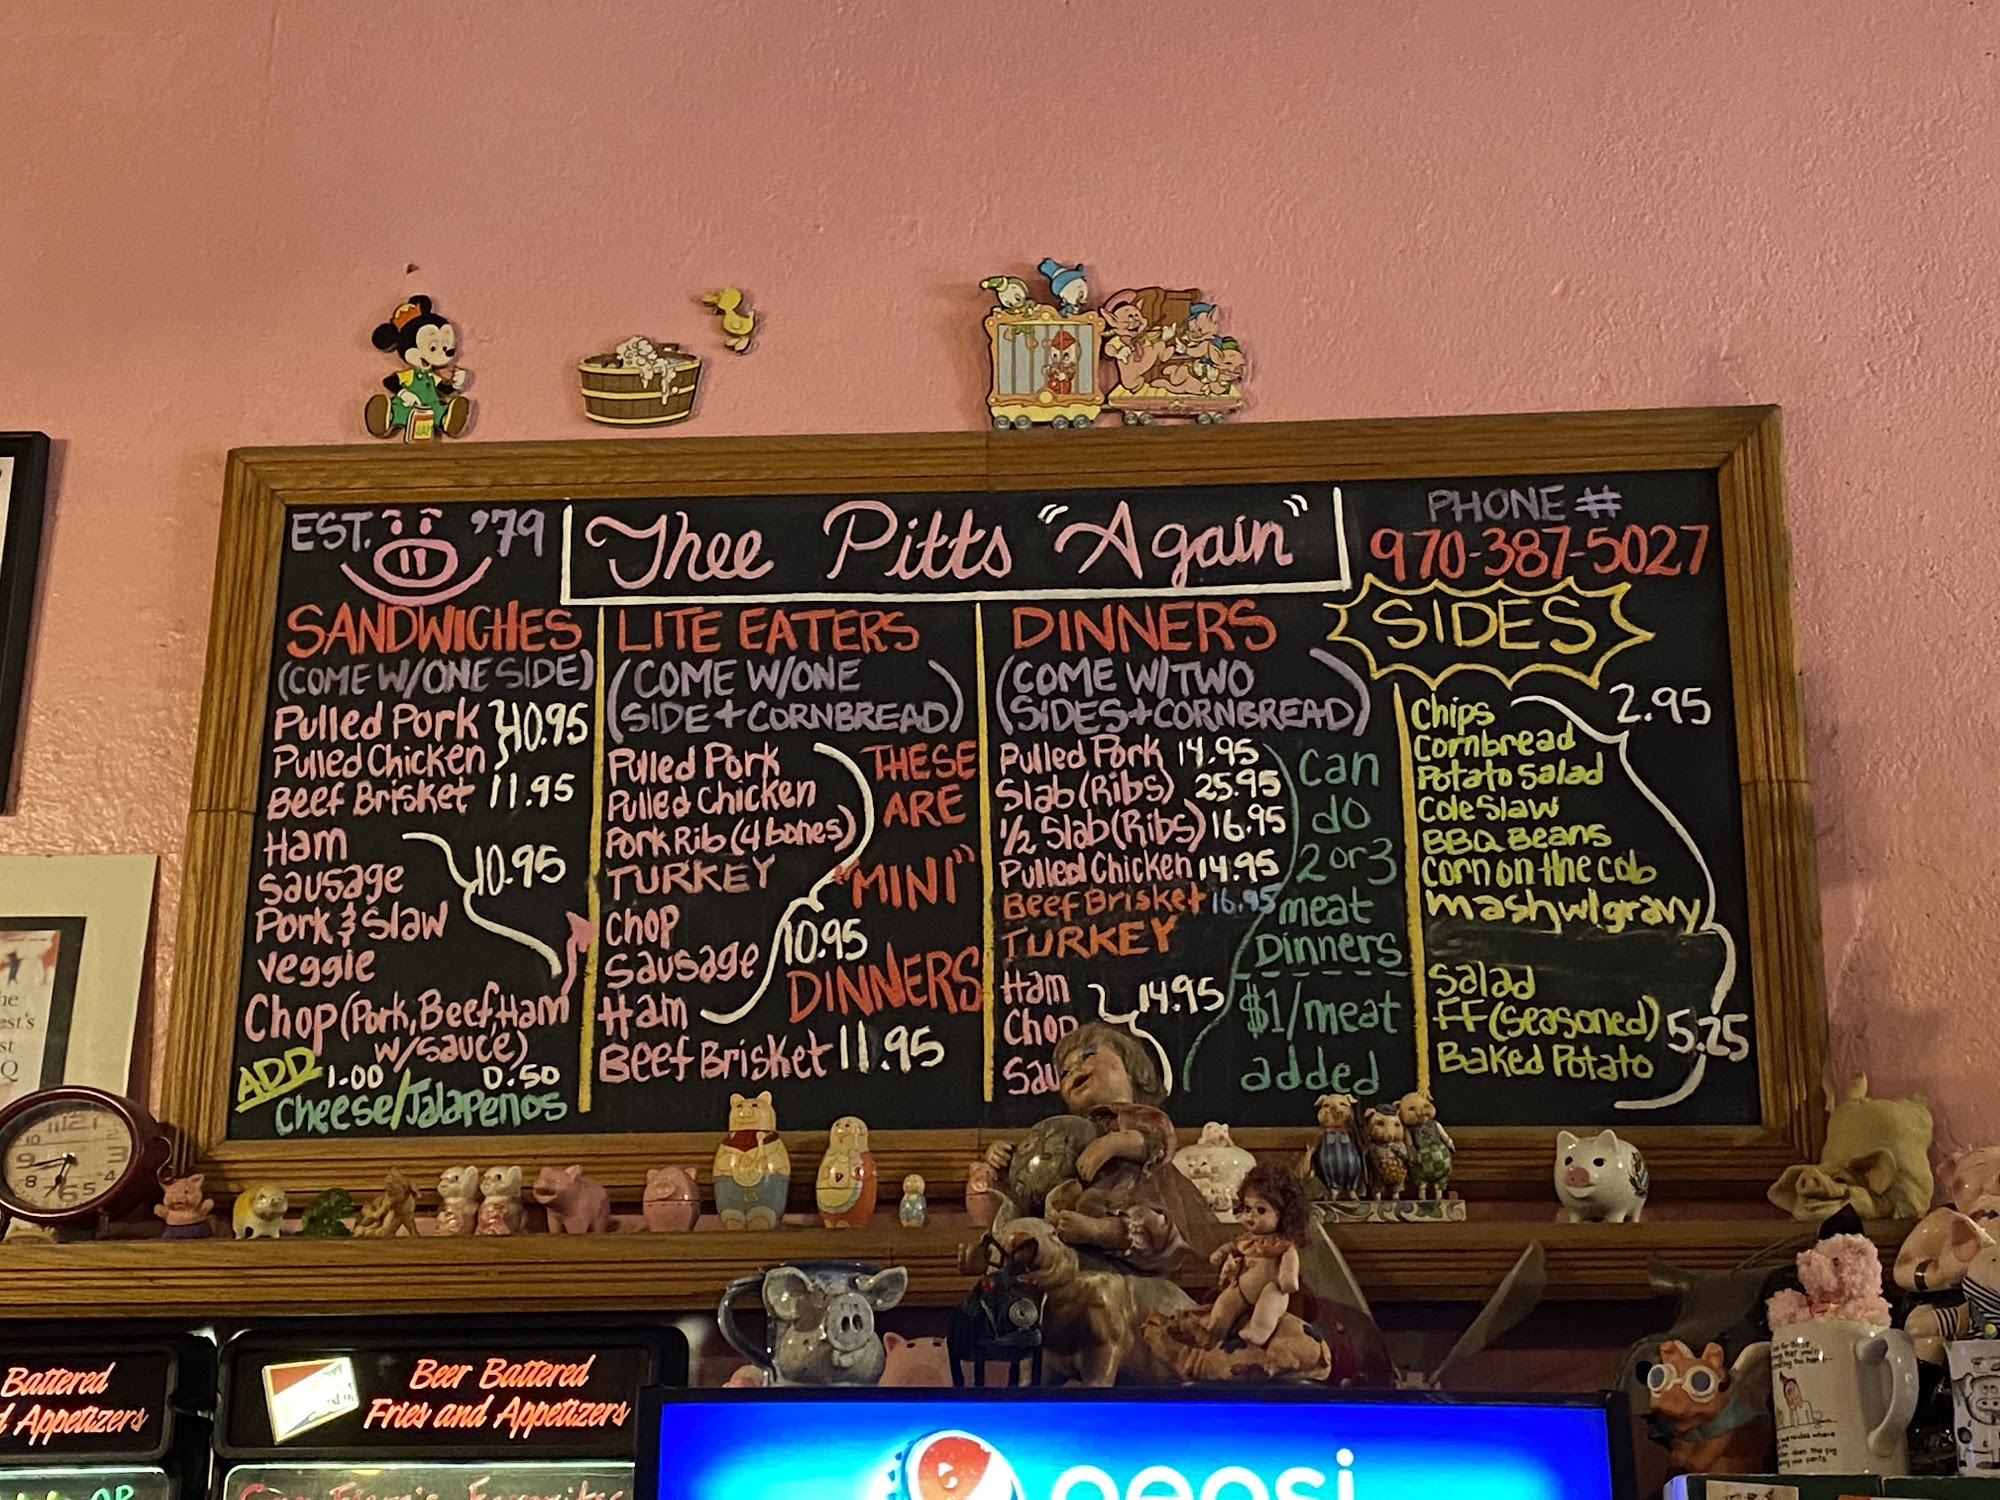 EST. '79
Thee Pitts "Again"
PHONE #
970-387-5027
SANDWICHES
(COME W/ONE SIDE)
Pulled Pork
Pulled Chicken
10.95
Beef Brisket 11.95
Ham
Sausage
Pork & Slaw
Veggie
10.95
Chop (Pork, Beef, Ham
w/sauce)
ADD
1.00 0.50
Cheese/Jalapenos
LITE EATERS
(COME W/ONE
SIDE + CORNBREAD)
Pulled Pork
Pulled Chicken
Pork Rib (4 bones)
TURKEY
Chop
Sausage
Ham
10.95
Beef Brisket 11.95
THESE
ARE
"MINI"
DINNERS
DINNERS
(COME W/TWO
SIDES + CORNBREAD)
Pulled Pork 14.95
Slab (Ribs) 25.95
1/2 Slab (Ribs) 16.95
Pulled Chicken 14.95
Beef Brisket 16.95
TURKEY
Ham
Chop
Sau
14.95
Can
do
2 or 3
meat
Dinners
$1/meat
added
SIDES
Chips
Cornbread
Potato Salad
Cole Slaw
BBQ Beans
Corn on the cob
mash w/gravy
2.95
Salad
FF (seasoned)
Baked Potato
5.25
Battered
d Appetizers
Beer Battered
Fries and Appetizers
pepsi